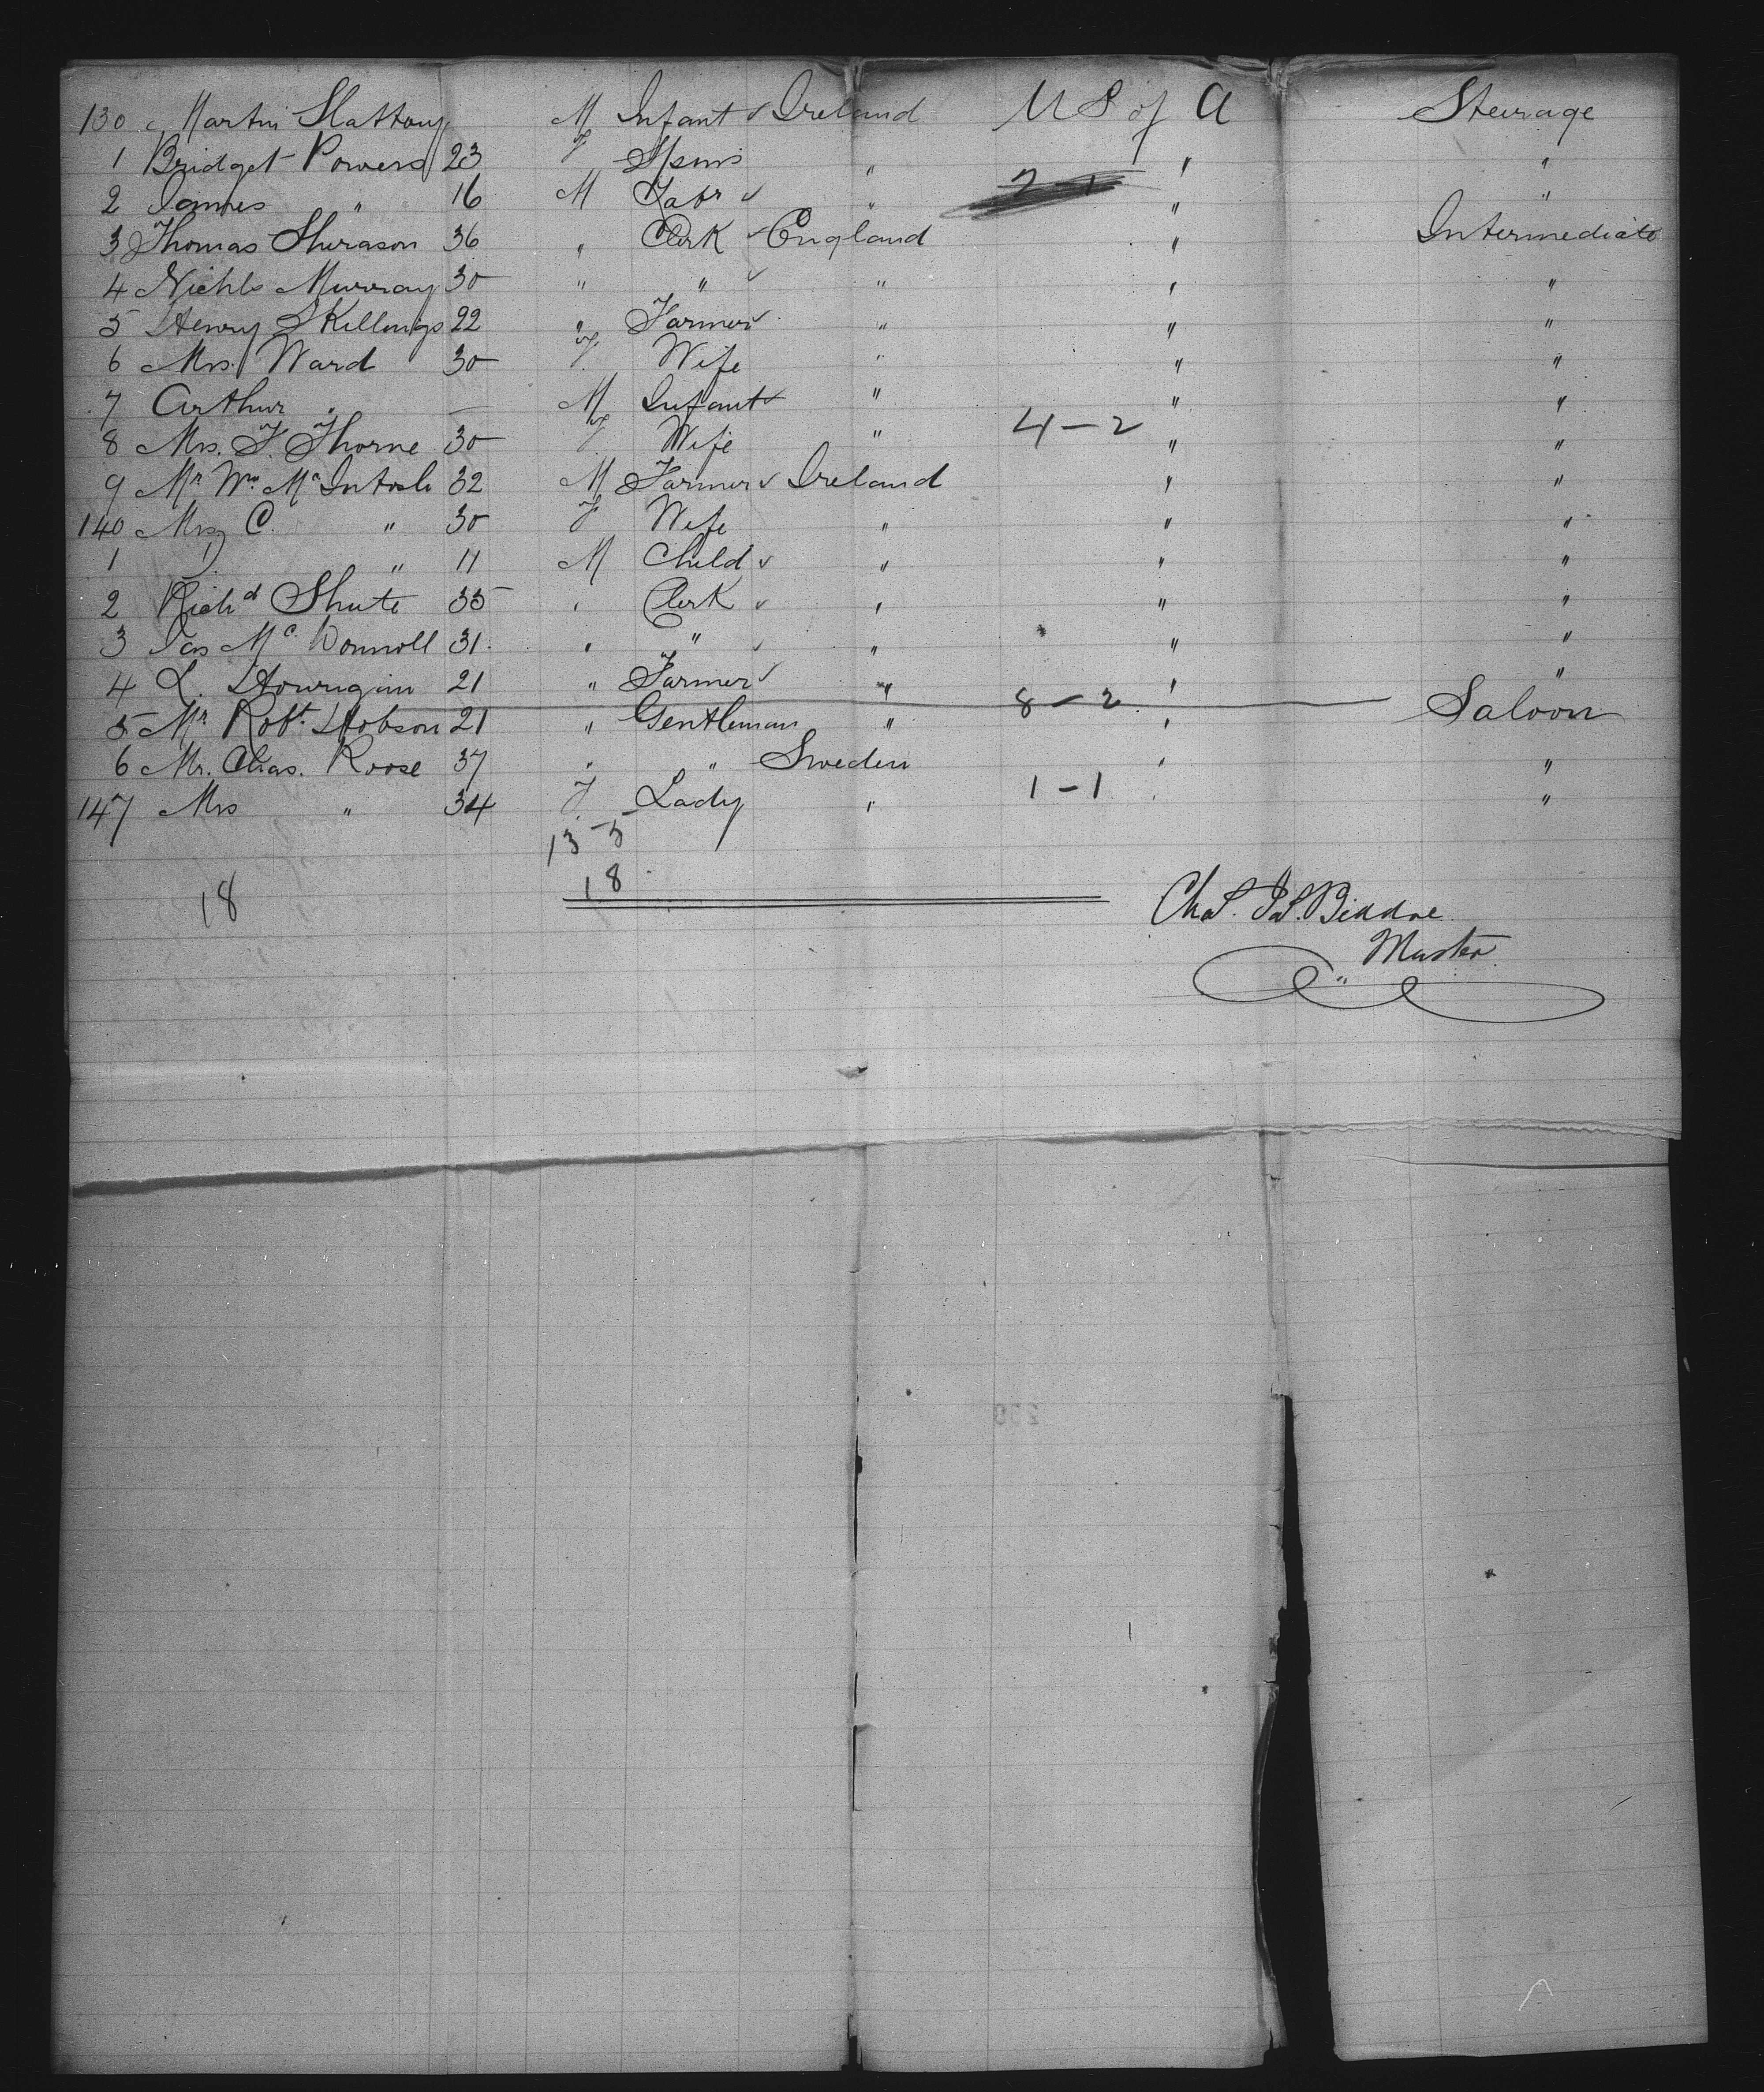 130 Martin Slattery M Infant ✓ Ireland U S of A Steerage
1 Bridget Powers 23 F Spins " " "
2 James " 16 M Labr ✓ " 2-1 " "
3 Thomas Sherason 36 " Clerk ✓ England " Intermediate
4 Nichls Murray 30 " " ✓ " " "
5 Henry Skillings 22 " Farmer ✓ " " "
6 Mrs. Ward 30 F. Wife " " "
7 Arthur " — M Infant ✓ " " "
8 Mrs. F. Thorne 30 F. Wife " 4-2 " "
9 Mr Wm. McIntosh 32 M Farmer ✓ Ireland " "
140 Mrs C. " 30 F Wife " " "
1 " 11 M Child ✓ " " "
2 Richd Shute 35 " Clerk ✓ " " "
3 Jas Mc Donnoll 31. " " ✓ " " "
4 L. Hourigan 21 " Farmer ✓ " " "
5 Mr Robt. Hobson 21 " Gentleman " 8-2 " Saloon
6 Mr. Chas. Roose 37 " " Sweden " "
147 Mrs " 34 F. Lady " 1-1 " "
13-5
18
18
Chas. Master
"